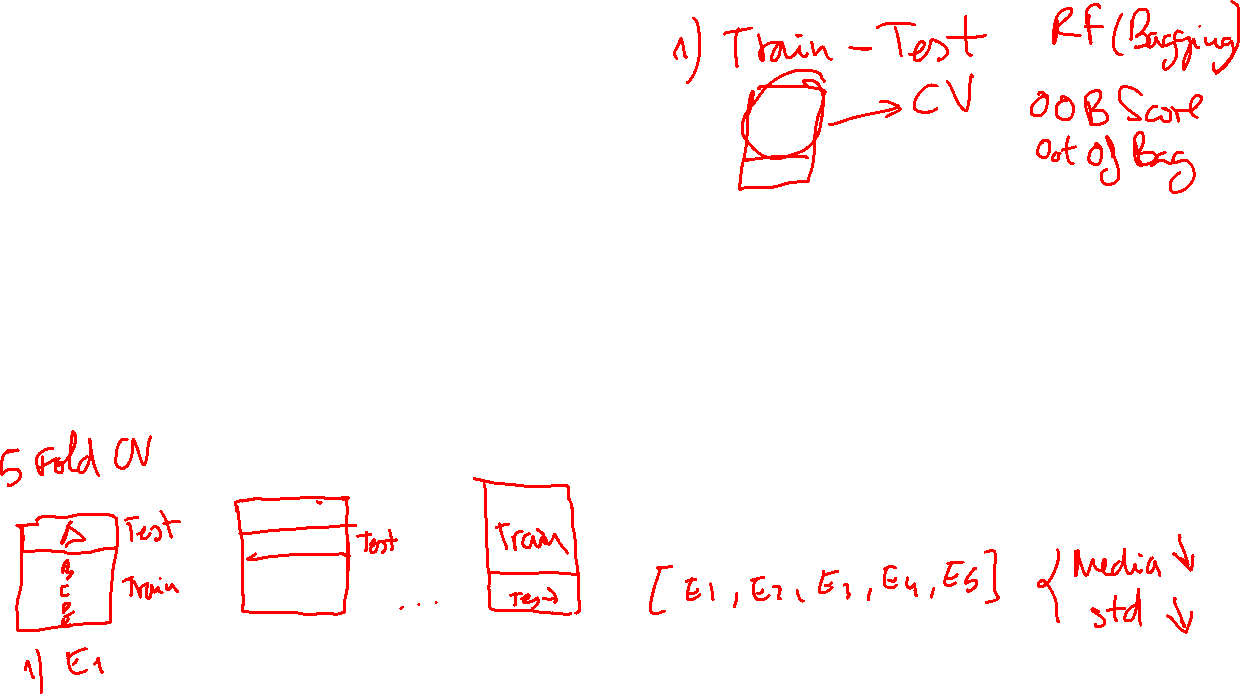 1) Train - Test
CV
RF (Bagging)
OOB Score
Out of Bag
5 Fold CV
A
Test
B
C
D
E
Train
1) E1
Test
...
Train
Test
[E1, E2, E3, E4, E5]
Media ↓
std ↓